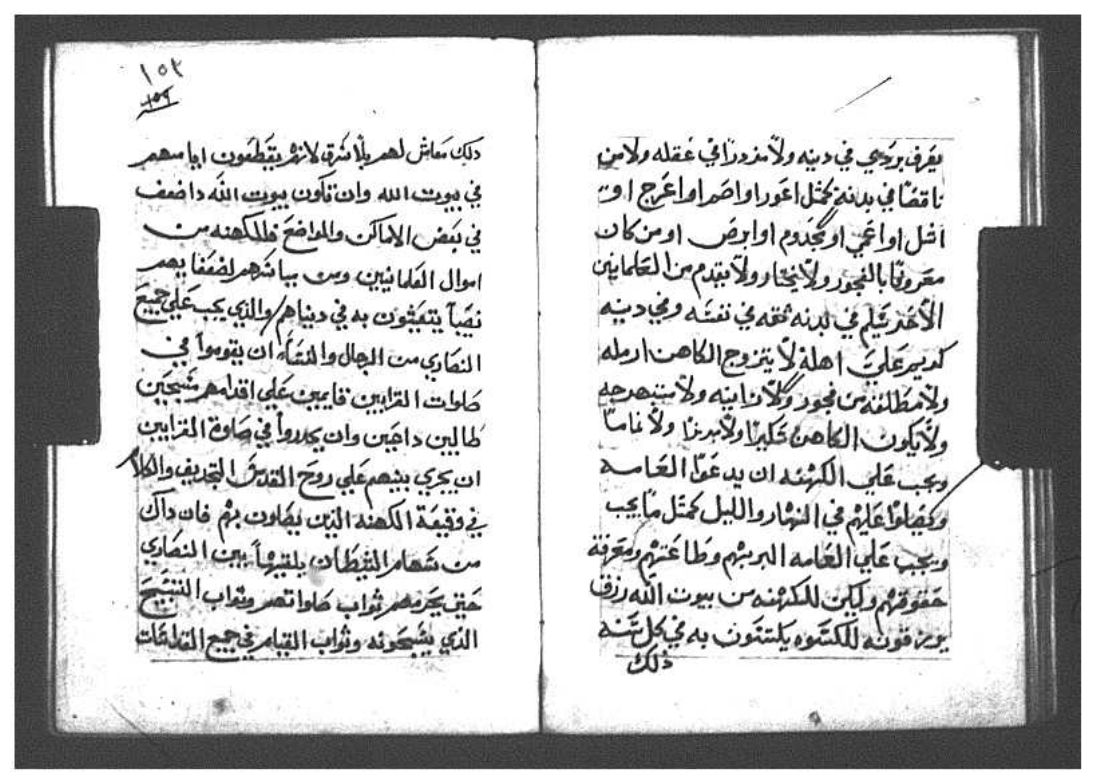 يعرف بردي في دينه ولا مزدرا في عقله ولا من
ناقصا في بدنه كمثل اعور او اصم او اعرج او
اشل او اعمي او مجدوم او ابرص او من كان
معروفا بالفجور ولا يختار ولا يقدم من العلمانيين
الا في بدنه ثقه في نفسه وفي دينه
علي اهله لا يتزوج الكاهن ارمله
ولا مطلقه من فجور ولا زانيه ولا
ولا يكون الكاهن ولا ولا ناما
ويجب علي الكهنه ان يدعوا العامه
ويصلوا عليهم في النهار والليل كمثل ما يجب
ويجب علي العامه البر بهم وطاعتهم ومعرفة
حقوقهم وليكن للكهنه من بيوت الله رزق
يرزقونه للكسوه يكتسون به في كل سنه
ذلك
١٥٣
ذلك معاش لهم بلا لانهم يقطعون ايامهم
في بيوت الله وان تكون بيوت الله داضعف
في بعض الاماكن والمواضع فللكهنه من
اموال العلمانيين ومن لضعفايهم
نصيبا يتعيشون به في دنياهم والذي يجب علي جميع
النصاري من الرجال والنساء ان يقوموا في
صلوات القرابين قايمين علي اقدامهم مسبحين
طالبين داعيين وان يحدروا في صلوة القرابين
ان يجري بينهم علي روح القدس التجديف والكلام
في وقيعة الكهنه الدين يصلون بهم فان داك
من سهام الشيطان يلقيها بين النصاري
حتي يحرمهم ثواب صلواتهم وثواب التسبيح
الذي يسبحونه وثواب القيام في جميع القداسات